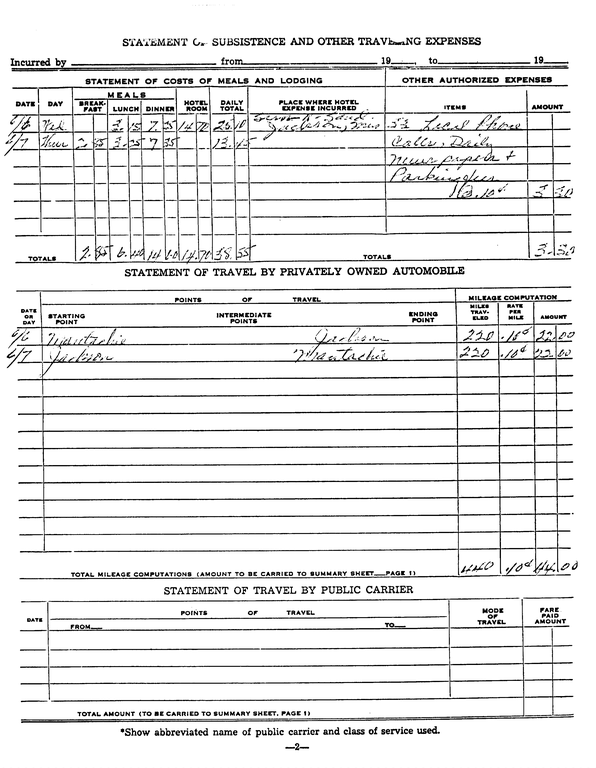 STATEMENT OF SUBSISTENCE AND OTHER TRAVELING EXPENSES
Incurred by from 19 , to 19
STATEMENT OF COSTS OF MEALS AND LODGING OTHER AUTHORIZED EXPENSES
DATE DAY MEALS BREAK-FAST LUNCH DINNER HOTEL ROOM DAILY TOTAL PLACE WHERE HOTEL EXPENSE INCURRED ITEMS AMOUNT
6/6 Wed. 3.15 7.25 14.70 25.10 Jackson, Miss Local Phone
6/7 Thur 2.85 3.25 7.35 13.45 Calls, Daily
Newspapers +
Parking fees
3.30
TOTALS 2.85 6.40 14.60 14.70 38.55 TOTALS 3.30
STATEMENT OF TRAVEL BY PRIVATELY OWNED AUTOMOBILE
POINTS OF TRAVEL MILEAGE COMPUTATION
DATE OR DAY STARTING POINT INTERMEDIATE POINTS ENDING POINT MILES TRAV-ELED RATE PER MILE AMOUNT
6/6 Mantachie Jackson 220 .10¢ 22.00
6/7 Jackson Mantachie 220 .10¢ 22.00
TOTAL MILEAGE COMPUTATIONS (AMOUNT TO BE CARRIED TO SUMMARY SHEET PAGE 1) 440 .10¢ 44.00
STATEMENT OF TRAVEL BY PUBLIC CARRIER
DATE POINTS OF TRAVEL MODE OF TRAVEL FARE PAID AMOUNT
FROM TO
TOTAL AMOUNT (TO BE CARRIED TO SUMMARY SHEET, PAGE 1)
*Show abbreviated name of public carrier and class of service used.
—2—